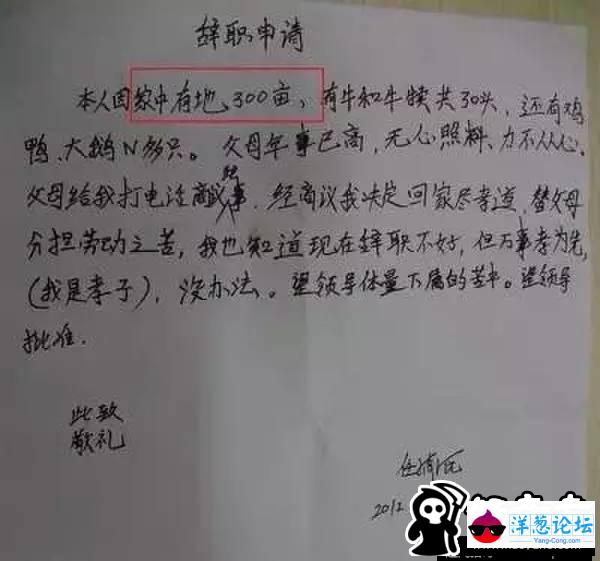 辞职申请
本人因家中有地300亩，有牛和牛犊共30头，还有鸡
鸭、大鹅N多只。父母年事已高，无心照料、力不从心、
父母给我打电话商议事，经商议我决定回家尽孝道，替父母
分担劳动之苦，我也知道现在辞职不好，但万事孝为先，
(我是孝子)，没办法。望领导体量下属的苦中。望领导
批准.
此致
敬礼
2012
洋葱论坛
Yang-Cong.com